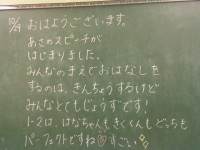 10/19 おはようございます。
あさのスピーチが
はじまりました。
みんなのまえでおはなしを
するのは、きんちょうするけど
みんなとてもじょうずです!
1-2は、はなちゃんもきくくんもどっちも
パーフェクトですね すごい